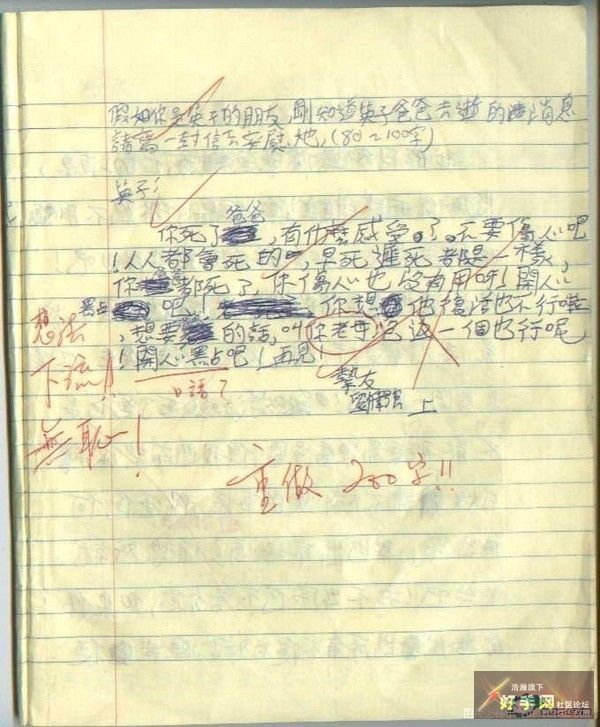 假如你是英子的朋友,剛知道英子爸爸去逝的消息
請寫一封信去安慰她,(80~100字)
英子:
爸爸
你死了,有什麼感受。了。不要傷心吧
!人人都會死的,早死遲死都是一樣,
你都死了,你傷心也沒有用呀!開心
黑占吧,你想他復活也不行啦
,想要的話,叫你老母呢返一個也行呢
!開心黑占吧!再見!
摯友
上
想法
下流!!
無恥!
口語?
重做 200字!!
浩瀚旗下
好手网 社区论坛